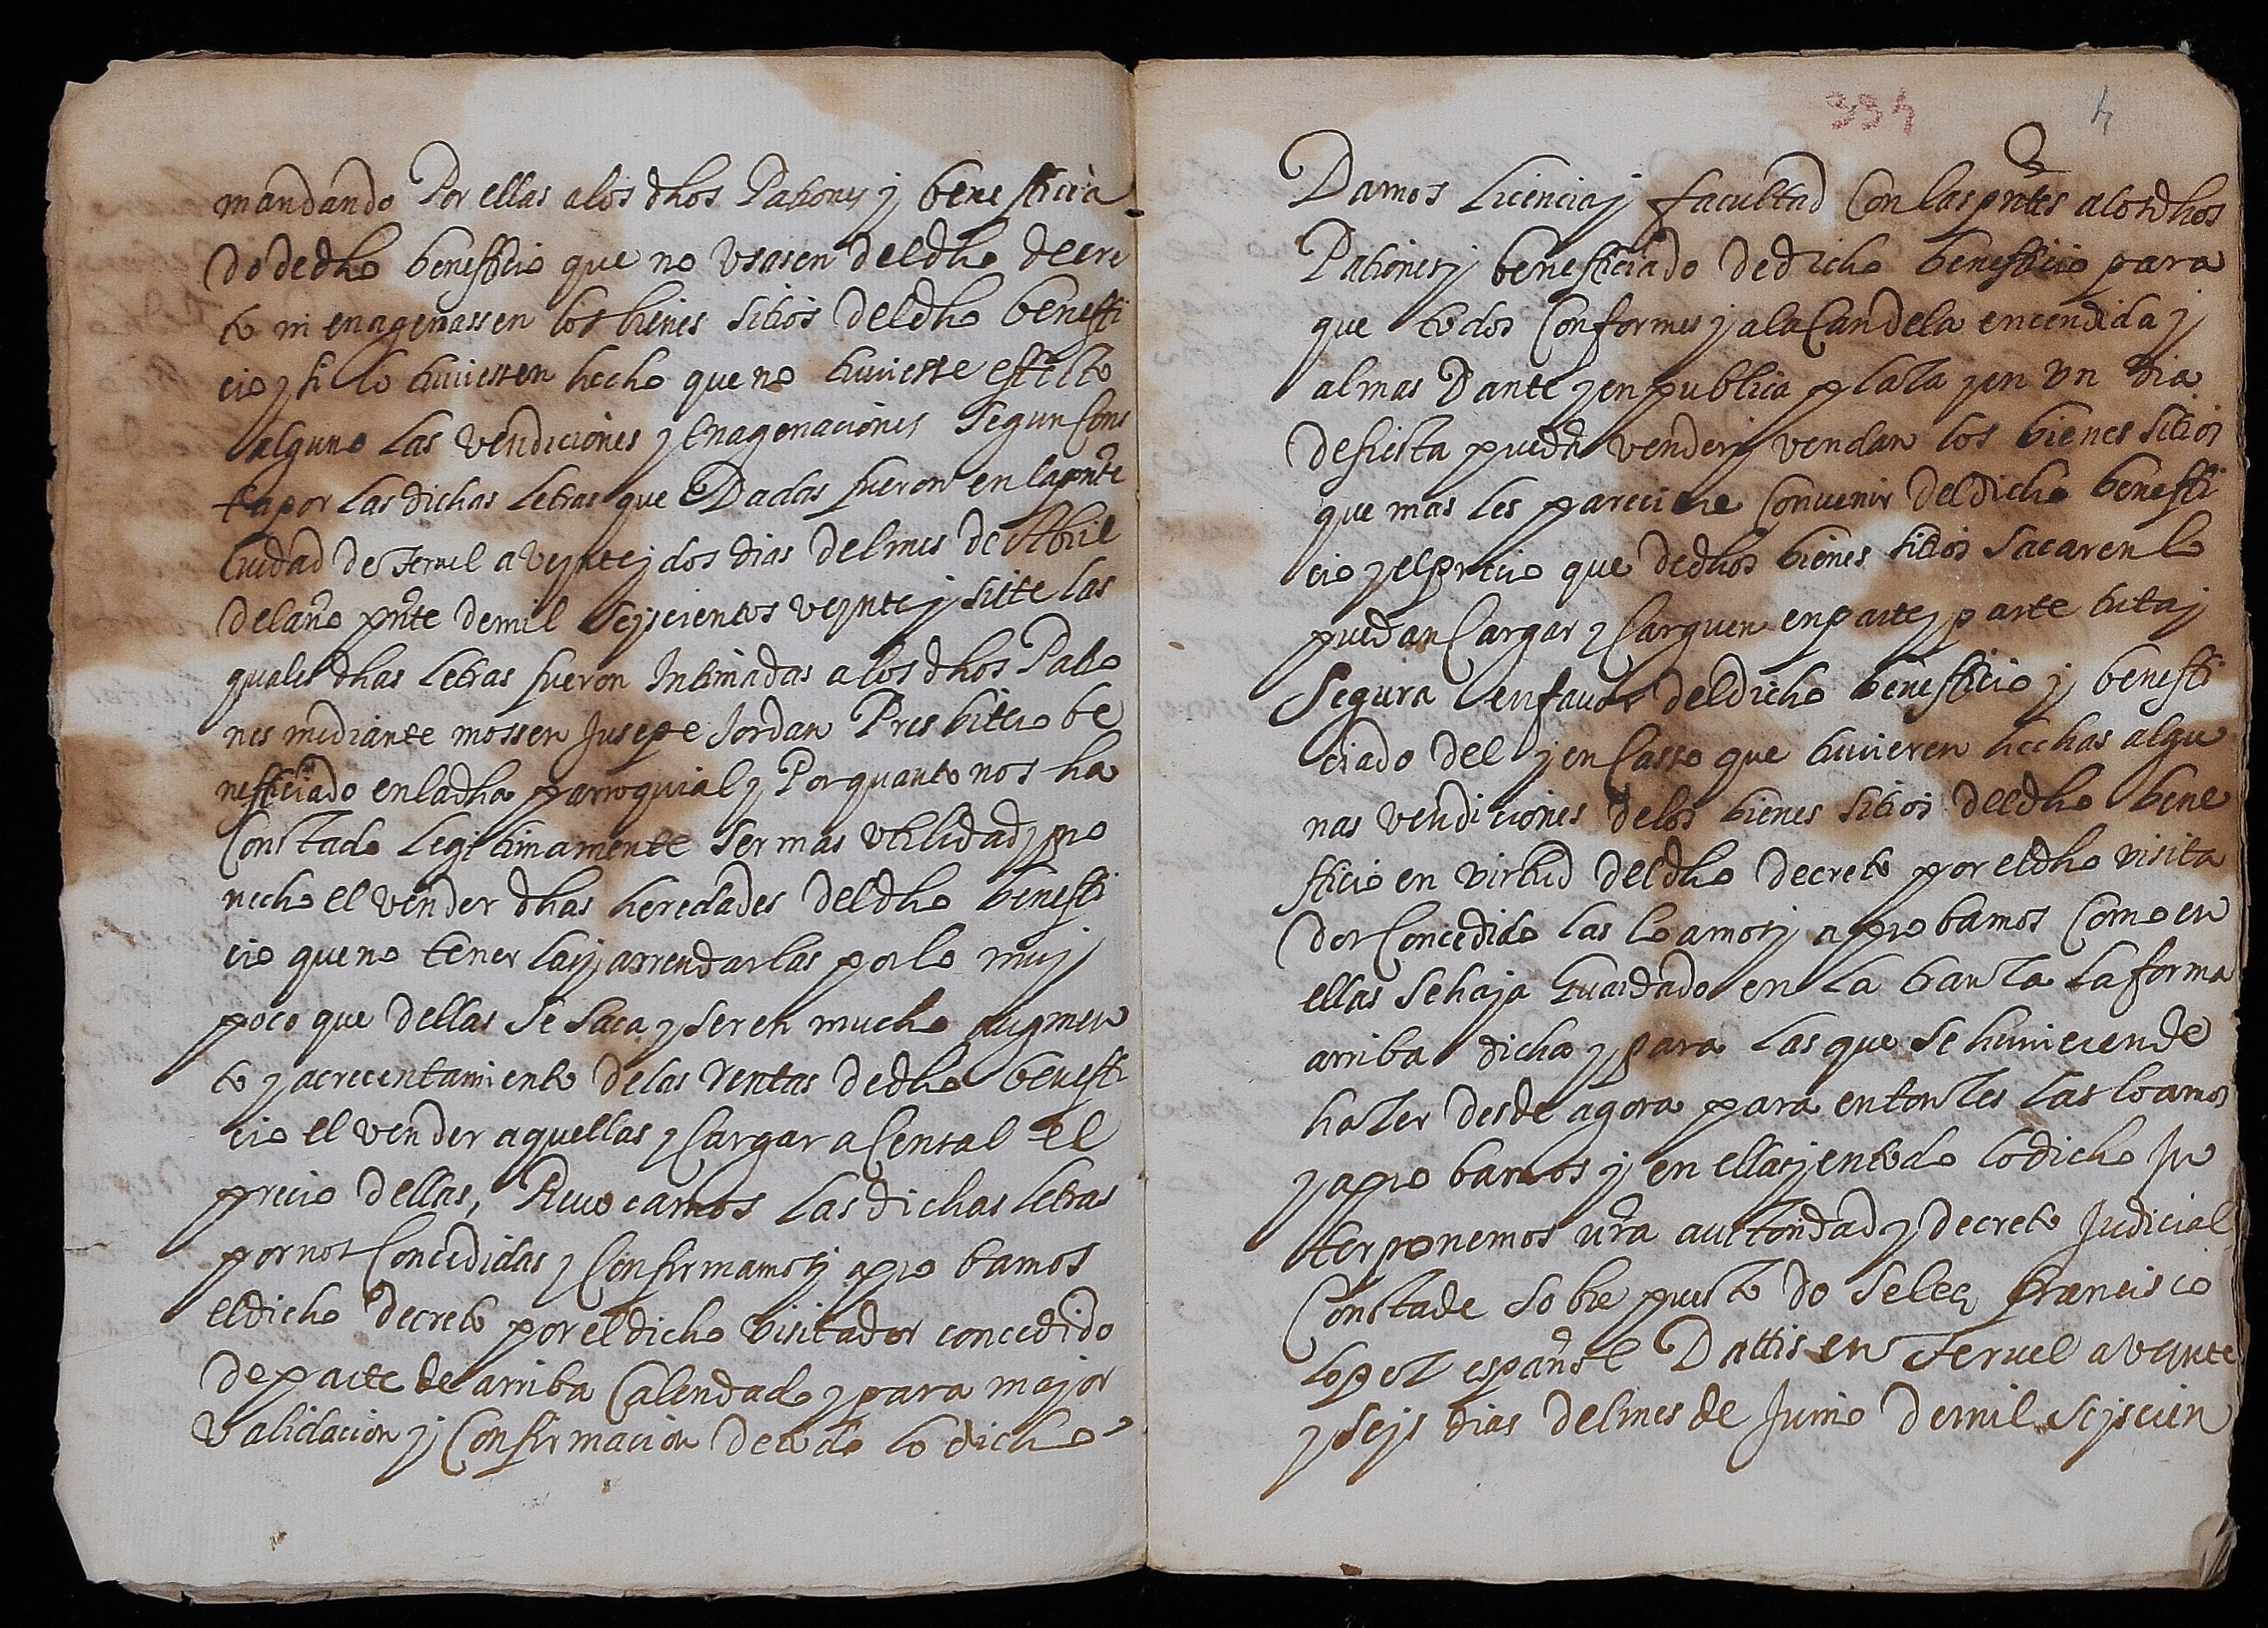 mandando Por ellas a los dhos Patrones y beneficia
do de dho beneficio que no usasen del dho decre
to ni enagenassen los bienes sitios del dho benefi
cio y si lo huviessen hecho que no huviesse effecto
alguno las vendiciones y enagenaciones segun Cons
ta por las dichas letras que Dadas fueron en la pnte
Ciudad de Teruel a veynte y dos dias del mes de Abril
del año pnte de mil seyscientos veynte y siete las
quales dhas letras fueron Intimadas a los dhos Patro
nes mediante mossen Jusepe Jordan Presbitero be
neficiado en la dha parroquial y Por quanto nos ha
Constado legitimamente ser mas utilidad y pro
uecho el vender dhas heredades del dho benefi
cio que no tenerlas y arrendarlas por lo muy
poco que dellas se saca y ser en mucho augmen
to y acrecentamiento de las rentas de dho benefi
cio el vender aquellas y Cargar a Censal el
precio dellas, Revocamos las dichas letras
por nos Concedidas y Confirmamos y aprobamos
el dicho decreto por el dicho visitador concedido
de parte de arriba Calendado y para major
validacion y Confirmacion de todo lo dicho
334 4
Damos licencia y facultad Con las pntes a los dhos
Patrones y beneficiado de dicho beneficio para
que todos Conformes y a la Candela encendida y
al mas Dante y en publica plaza y en un dia
de fiesta puedan vender y vendan los bienes sitios
que mas les pareciere Convenir del dicho benefi
cio y el precio que de dhos bienes sitios sacaren lo
puedan Cargar y Carguen en parte y parte tuta y
segura en favor del dicho beneficio y benefi
ciado del y en Casso que huvieren hechas algu
nas vendiciones de los bienes sitios del dho bene
ficio en virtud del dho decreto por el dho visita
dor Concedido las loamos y aprobamos Como en
ellas se haja guardado en la tranza la forma
arriba dicha y para las que se huvieren de
hazer desde agora para entonzes las loamos
y aprobamos y en ellas y en todo lo dicho In
terponemos nra auctoridad y decreto Judicial
Consta de sobre puesto do se lee Francisco
lopez español Dattis en Teruel a veynte
y seys dias del mes de Junio de mil seyscien